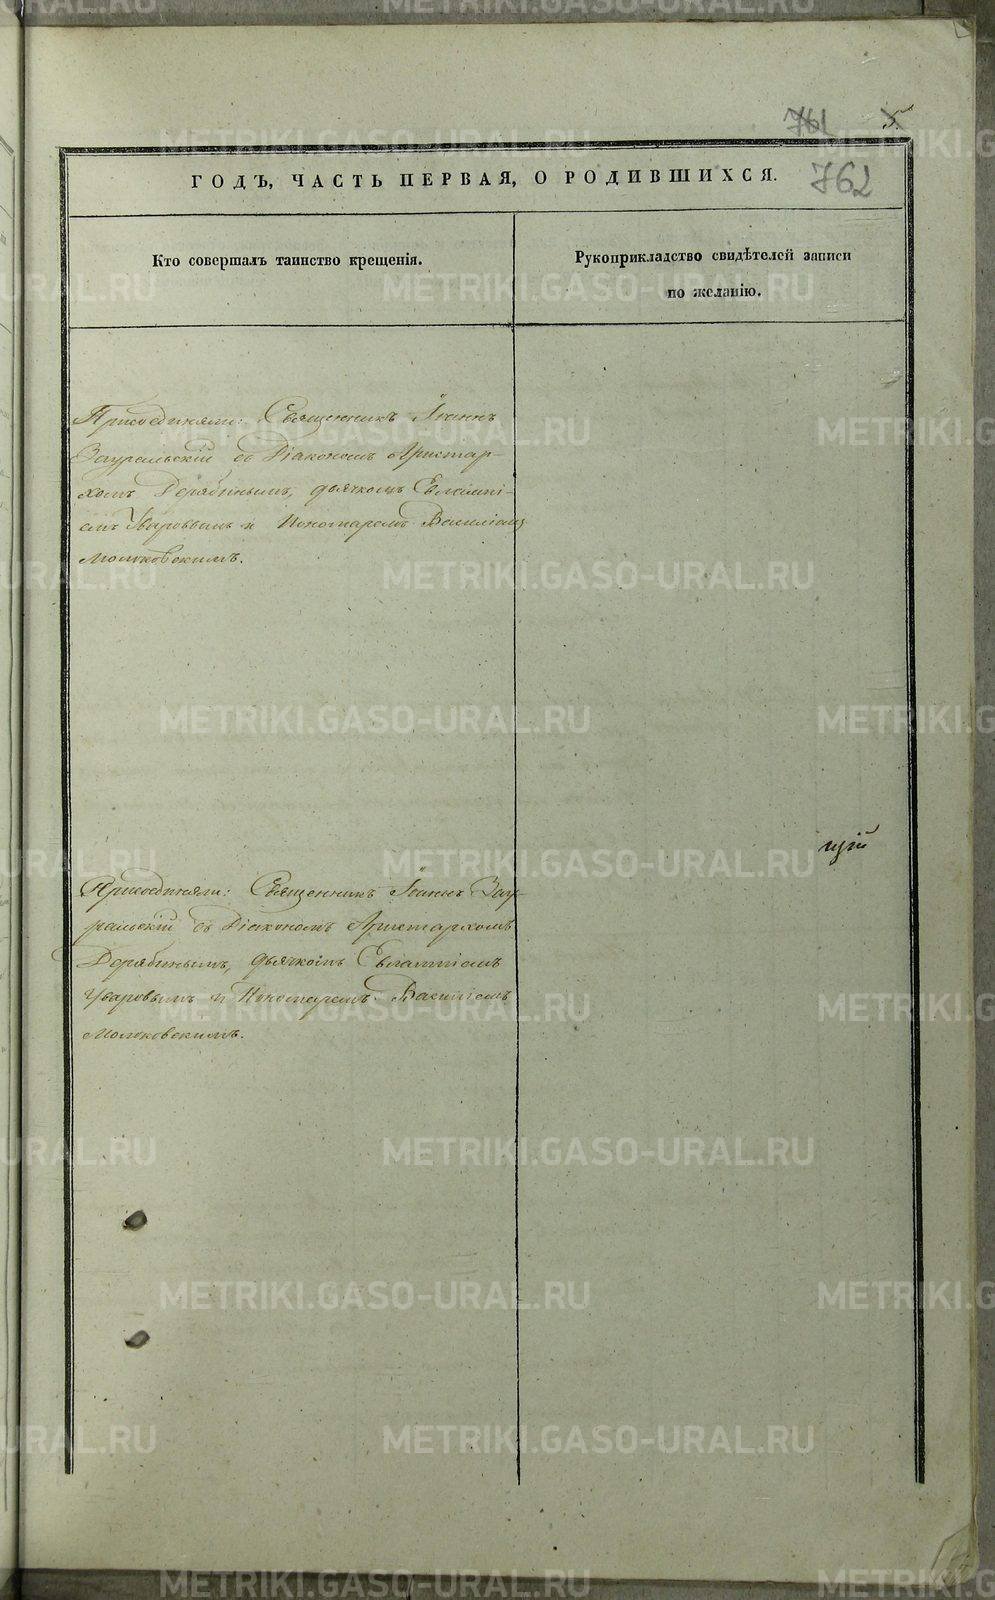 761 5
762
ГОДЪ, ЧАСТЬ ПЕРВАЯ, О РОДИВШИХСЯ.
Кто совершалъ таинство крещенія.
Рукоприкладство свидѣтелей записи
по желанію.
Присоединяли: Священникъ Іоаннъ
Зауральскій съ Діакономъ Аристар-
хомъ Дерябинымъ, дьячкомъ Евлампі-
емъ Уваровымъ и Пономаремъ Василіемъ
Молоковскимъ.
щій
Присоединяли: Священникъ Іоаннъ Зау-
ральскій съ Діакономъ Аристархомъ
Дерябинымъ, дьячкомъ Евлампіемъ
Уваровымъ и Пономаремъ Василіемъ
Молоковскимъ.
METRIKI.GASO-URAL.RU